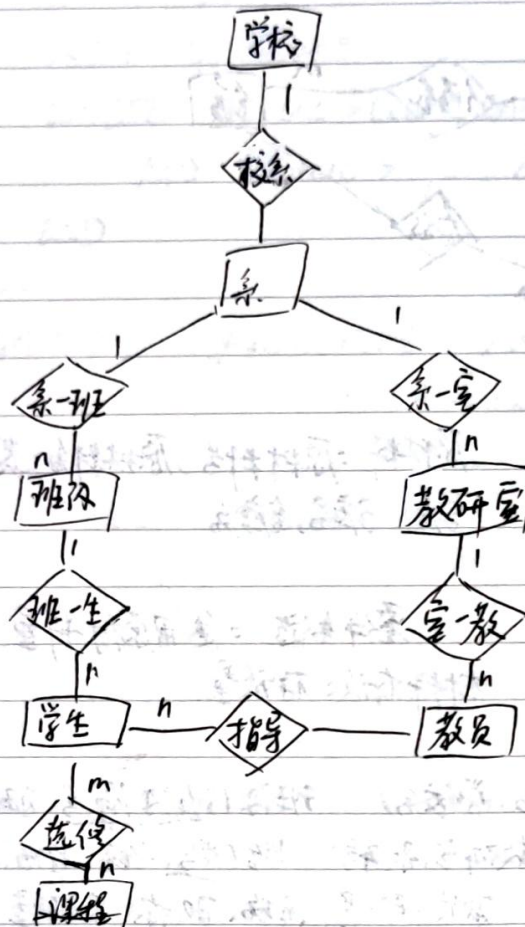 学校
1
校系
系
1 1
系一班 系一室
n n
班级 教研室
1 1
班一生 室一教
n n
学生 n 指导 教员
m
选修
n
课程